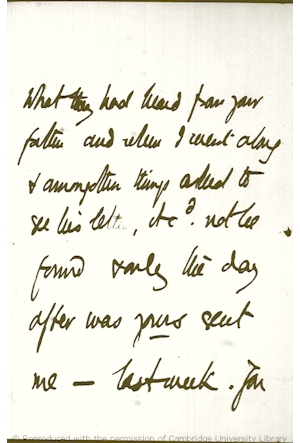 What they had heard from your
father and when I went along
& amongst other things asked to
see his letter, it cd. not be
found & only the day
after was yours sent
me — last week. For
© Reproduced with the permission of Cambridge University Library